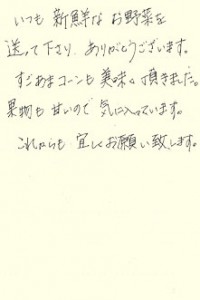 いつも 新鮮な お野菜を
送って下さり、ありがとうございます。
すごあまコーンも 美味しく頂きました。
果物も甘いので 気に入っています。
これからも 宜しくお願い致します。